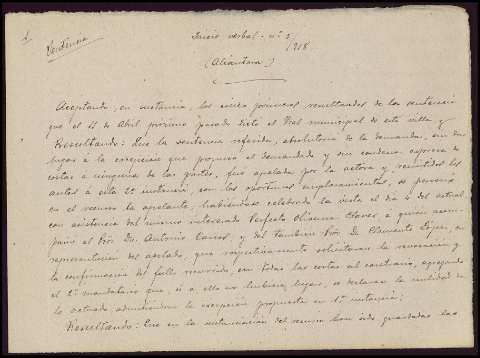 Sentencia
Juicio verbal - nº 2
1918
(Alcántara)
Aceptando, en sustancia, los cinco primeros resultandos de la sentencia
que el 11 de Abril próximo pasado dictó el Tbal municipal de esta villa y
Resultando: Que la sentencia referida, absolutoria de la demanda, sin dar
lugar á la excepción que propuso el demandado y sin condena expresa de
costas á ninguna de las partes, fué apelada por la actora y remitidos los
autos á esta 2ª instancia, con los oportunos emplazamientos, se personó
en el recurso la apelante, habiéndose celebrado la vista el día 4 del actual
con asistencia del mismo interesado Perfecto Claver, á quien acom-
pañó el Pdor. Dn. Antonio y del también Pdor. Dn. Clemente López, en
representación del apelado, que respectivamente solicitaron la revocación y
la confirmación del fallo recurrido, con todas las costas al contrario, agregando
el 2º mandatario que, si á ello no hubiere lugar, se declare la nulidad de
lo actuado, admitiéndose la excepción propuesta en 1ª instancia;
Resultando: Que en la sustanciación del recurso han sido guardadas las